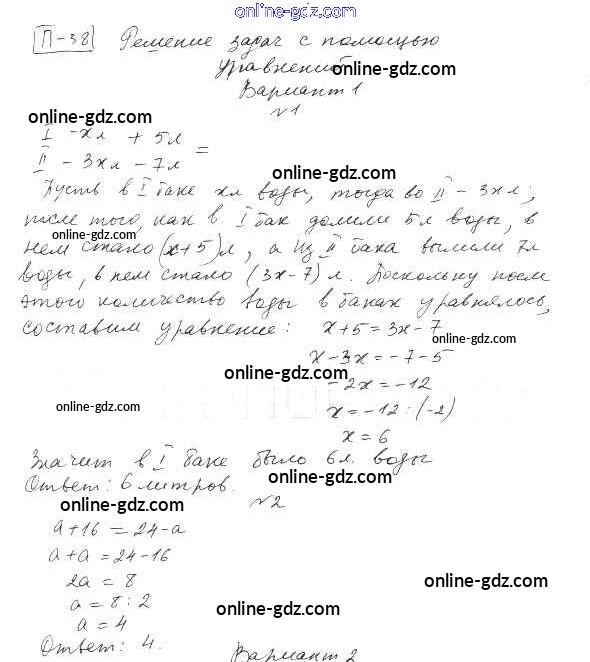 online-gdz.com
П-38 Решение задач с помощью
уравнений
online-gdz.com
Вариант 1
№1
online-gdz.com
I - xл + 5л
II - 3xл - 7л =
online-gdz.com
Пусть в I баке xл воды, тогда во II - 3xл;
после того, как в I бак долили 5л воды, в
online-gdz.com
нем стало (x+5)л, а из II бака вылили 7л
воды, в нем стало (3x-7)л. Поскольку после
этого количество воды в баках уравнялось,
составим уравнение: x+5=3x-7
online-gdz.com
x-3x=-7-5
online-gdz.com
-2x=-12
online-gdz.com
x=-12:(-2)
x=6
Значит в I баке было 6л. воды
online-gdz.com
Ответ: 6 литров.
№2
online-gdz.com
a+16=24-a
a+a=24-16
2a=8
online-gdz.com
a=8:2
online-gdz.com
a=4
Ответ: 4.
Вариант 2